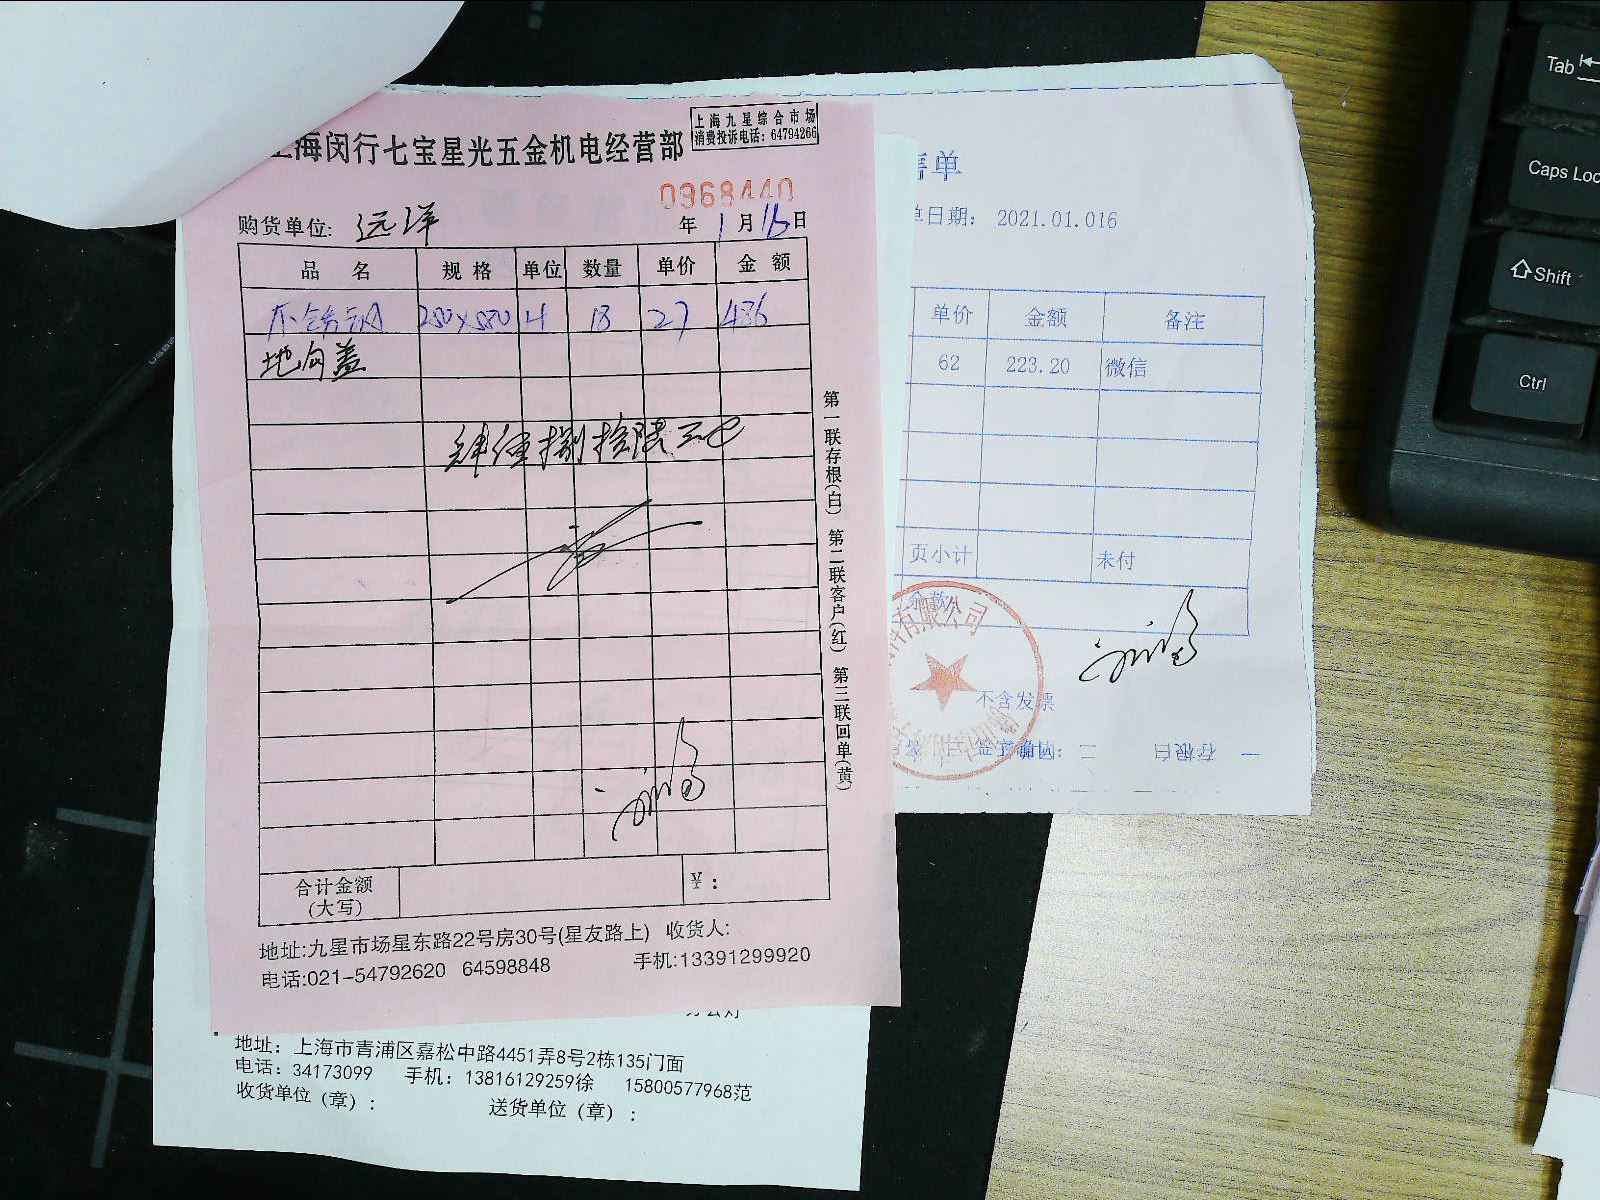 上海闵行七宝星光五金机电经营部
上海九星综合市场
消费投诉电话：64794266
0968440
购货单位: 远洋 年 1月16日
品名 规格 单位 数量 单价 金额
不锈钢 280×580 4 18 27 486
地沟盖
肆佰捌拾陆元
合计金额
(大写)
¥：
第一联存根(白) 第二联客户(红) 第三联回单(黄)
地址:九星市场星东路22号房30号(星友路上) 收货人:
电话:021-54792620 64598848 手机:13391299920
地址：上海市青浦区嘉松中路4451弄8号2栋135门面
电话：34173099 手机：13816129259徐 15800577968范
收货单位（章）： 送货单位（章）：
售单
单日期： 2021.01.016
单价 金额 备注
62 223.20 微信
页小计 未付
余款
有限公司
不含发票
Tab
Caps Loc
Shift
Ctrl